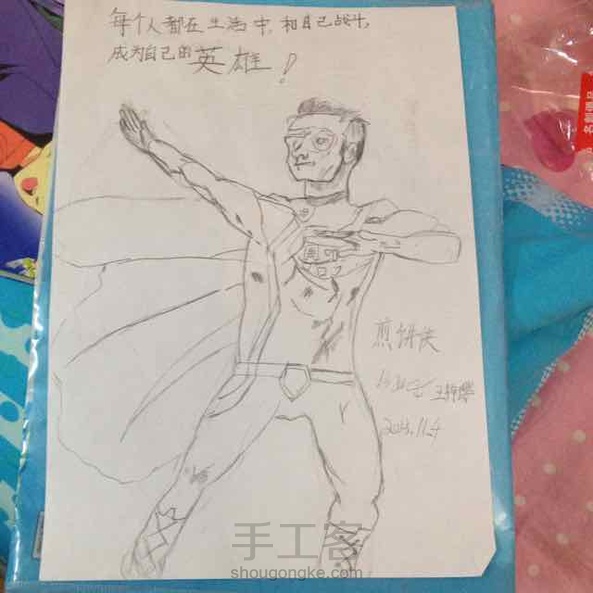 每个人都在生活中,和自己战斗,
成为自己的英雄!
煎饼侠
2015.11.4
手工客
shougongke.com